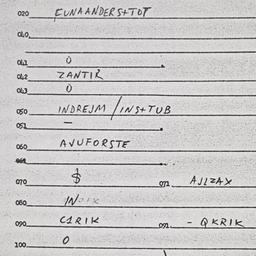 020 EUNAANDERS+TOT
040
041 0
042 ZANTIR
043 0
050 INDREJM/INS+TUB
051 —
060 AJUFORSTE
070 $ 071 AJLZAX
080
090 C1RIK 091 - QKRIK
100 0